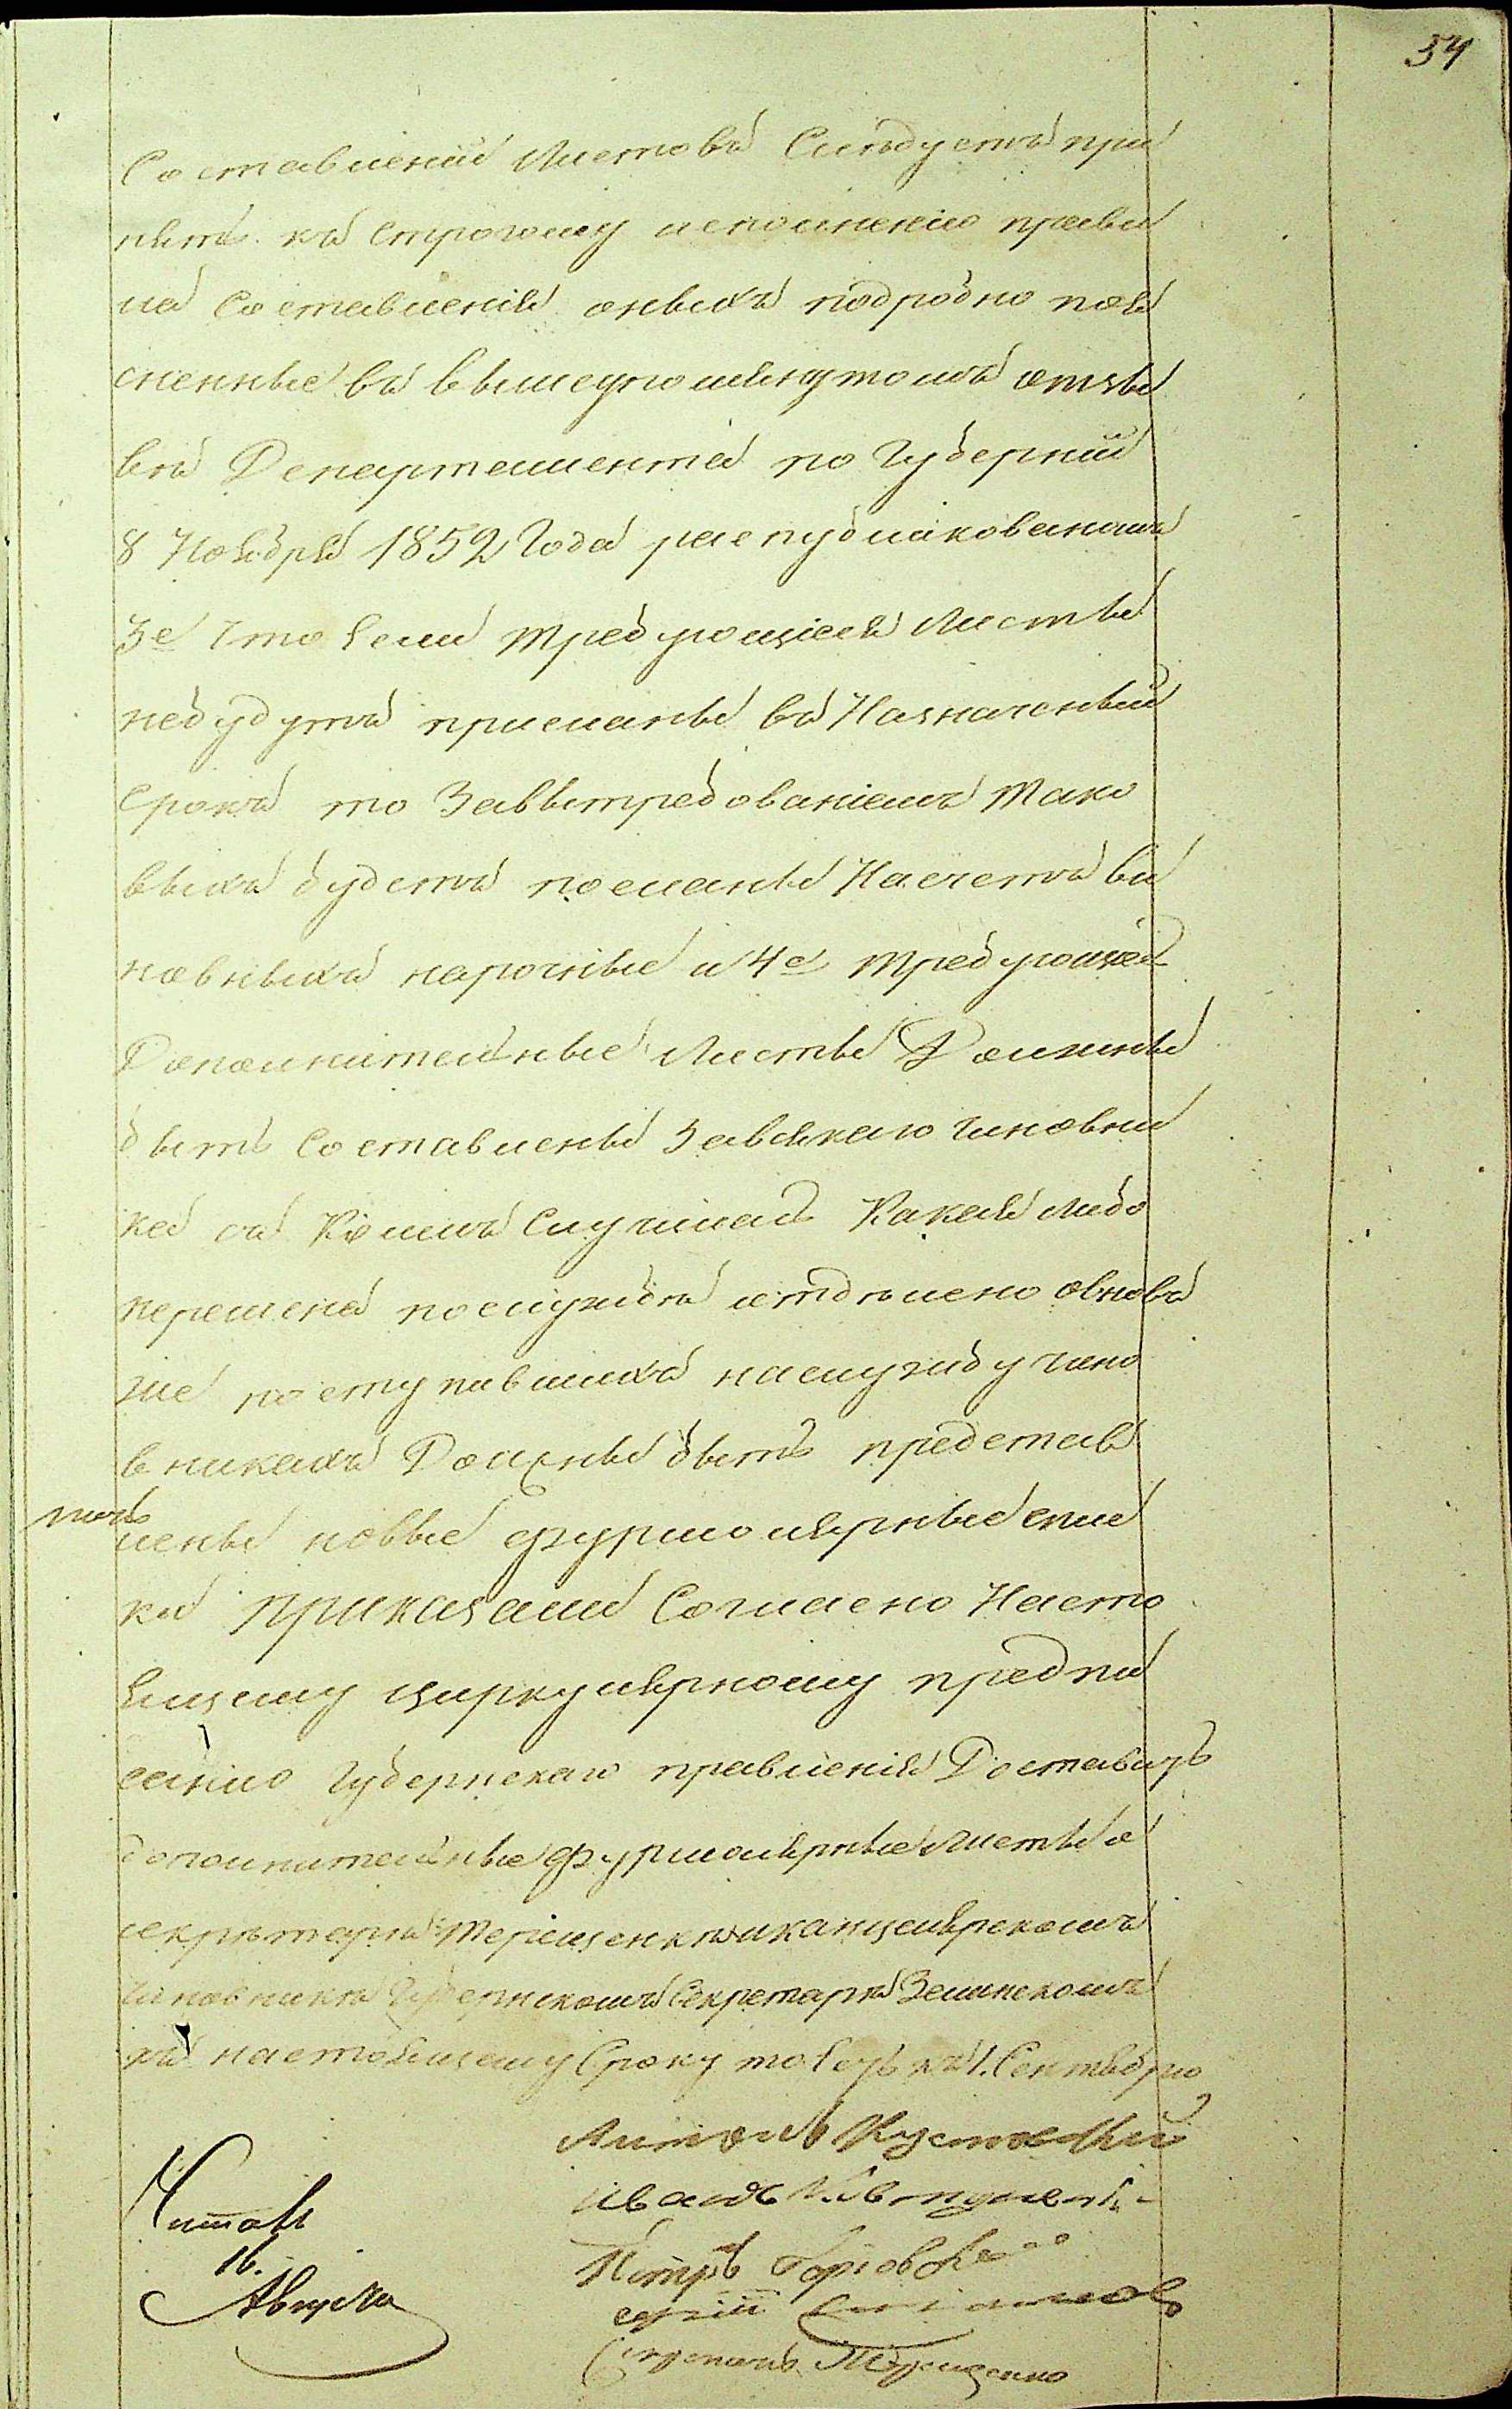 34
Составленіи Листовъ Слѣдуетъ при
нять къ строгому исполненію прави
ла Составленія оныхъ подробно поя
сненные въ вышеупомянутомъ отзы
вѣ Департамента по Губерніи
8 Ноября 1852 Года распубликованомъ
3е Что если требующіеся Листы
небудутъ присланы въ Назначеный
Срокъ то Завытребованіемъ Тако
выхъ будетъ посланы Насчетъ ви
новныхъ нарочные и 4е требующіе
Дополнительные Листы Должны
быть Составлены Завсякаго чиновни
ка съ Коимъ Случилась Какая либо
перемена послужбѣ отдѣлено овновъ
же поступившихъ наслужбу чино
вникахъ Должны быть представ
лены новые формолярные спис
ки Приказали Согласно Насто
ящему циркулярному предпи
санію Губернскаго правленія Доставить
дополнительные формолярные Листы о
секретарѣ Терещенкѣ и канцелярскомъ
чиновникѣ Губернскомъ Секретарѣ Зелинскомъ
къ настоящему Сроку то есть къ 1. Сентября
Иванъ
Петръ
Секретарь Терещенко
Читалъ
16.
Августа